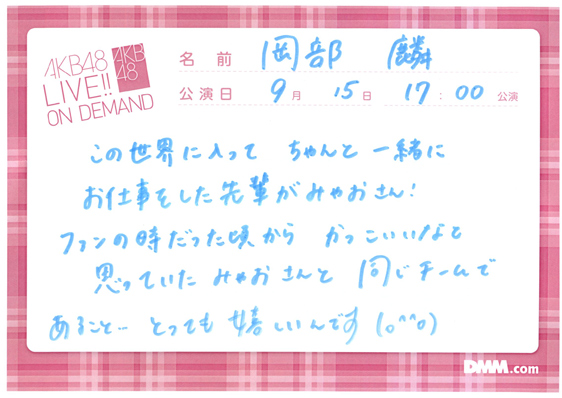 AKB48
LIVE!!
ON DEMAND
AKB
48
名前 岡部 麟
公演日 9月 15日 17:00 公演
この世界に入って ちゃんと 一緒に
お仕事をした先輩がみゃおさん!
ファンの時だった頃から かっこいいなと
思っていた みゃおさんと 同じチームで
あること… とっても 嬉しいんです (o^^o)
DMM.com